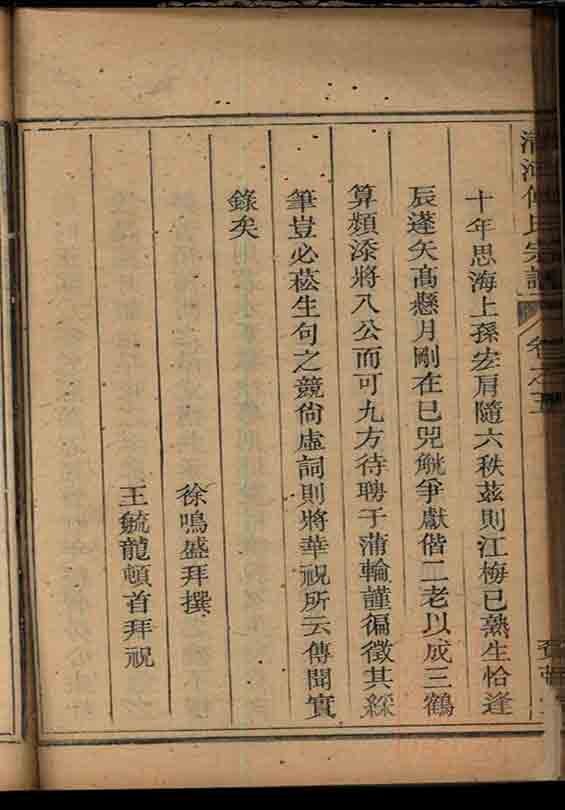 清河傅氏宗譜 卷之五
十年思海上孫宏肩隨六秩茲則江梅已熟生恰逢
辰蓬矢高懸月剛在巳兕觥爭獻偕二老以成三鶴
算類添將八公而可九方待聘于蒲輪謹徧徵其綵
筆豈必菘生句之競尙虛詞則將華祝所云傳聞實
錄矣
徐鳴盛拜撰
王毓龍頓首拜祝